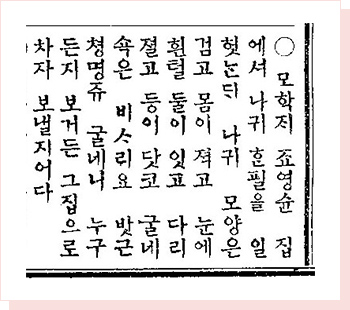 ○ 모학지 죠영슌 집
에셔 나귀 ᄒᆞᆫ필을 일
헛ᄂᆞᆫᄃᆡ 나귀 모양은
검고 몸이 젹고 눈에
흰털 둘이 잇고 다리
졀고 등이 닷코 굴네
쇽은 비ᄉᆞ리요 밧근
쳥명쥬 굴네니 누구
든지 보거든 그집으로
차자 보낼지어다